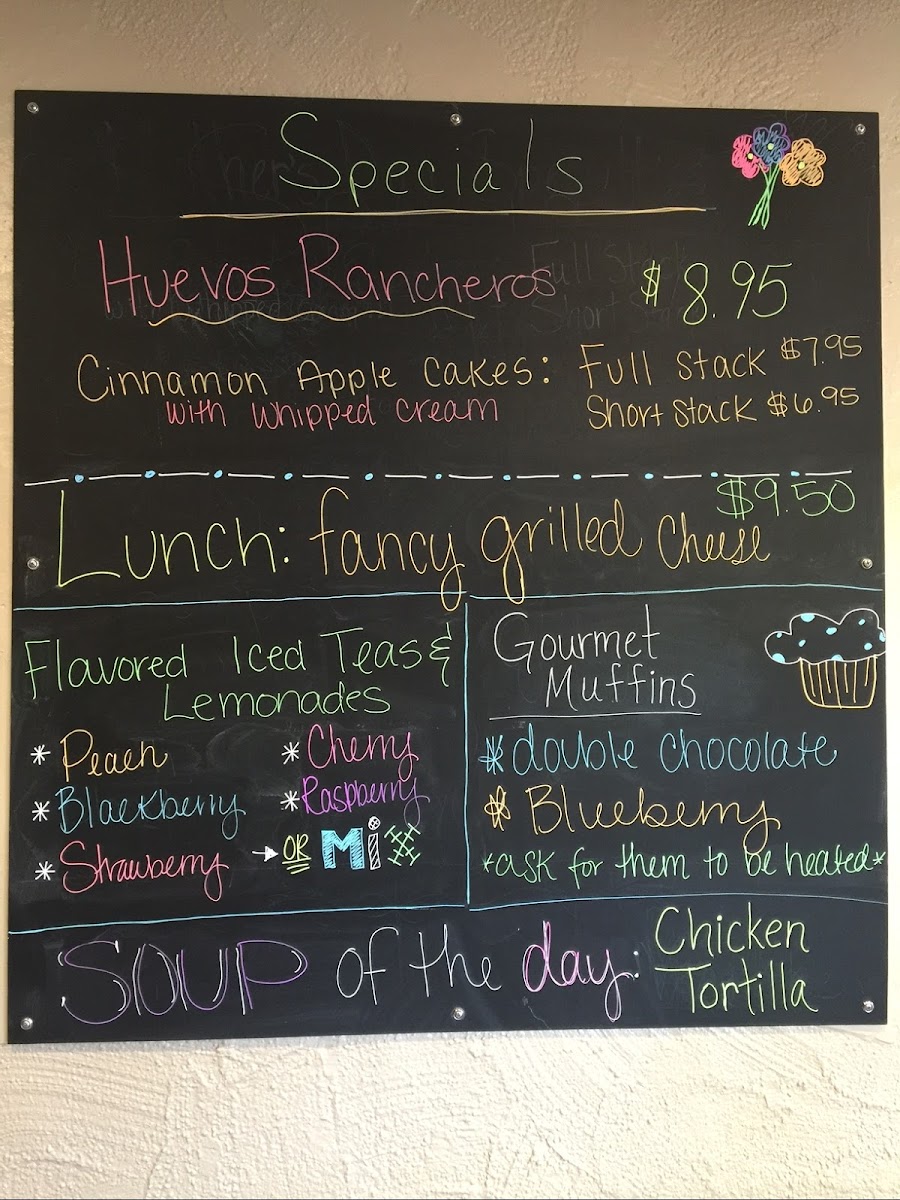 Specials
Huevos Rancheros $8.95
Cinnamon Apple Cakes: Full Stack $7.95
with whipped cream Short Stack $6.95
$9.50
Lunch: fancy grilled cheese
Flavored Iced Teas &
Lemonades
* Peach * Cherry
* Blackberry * Raspberry
* Strawberry → OR MiX
Gourmet
Muffins
* double chocolate
* Blueberry
*ask for them to be heated*
SOUP of the day: Chicken
Tortilla